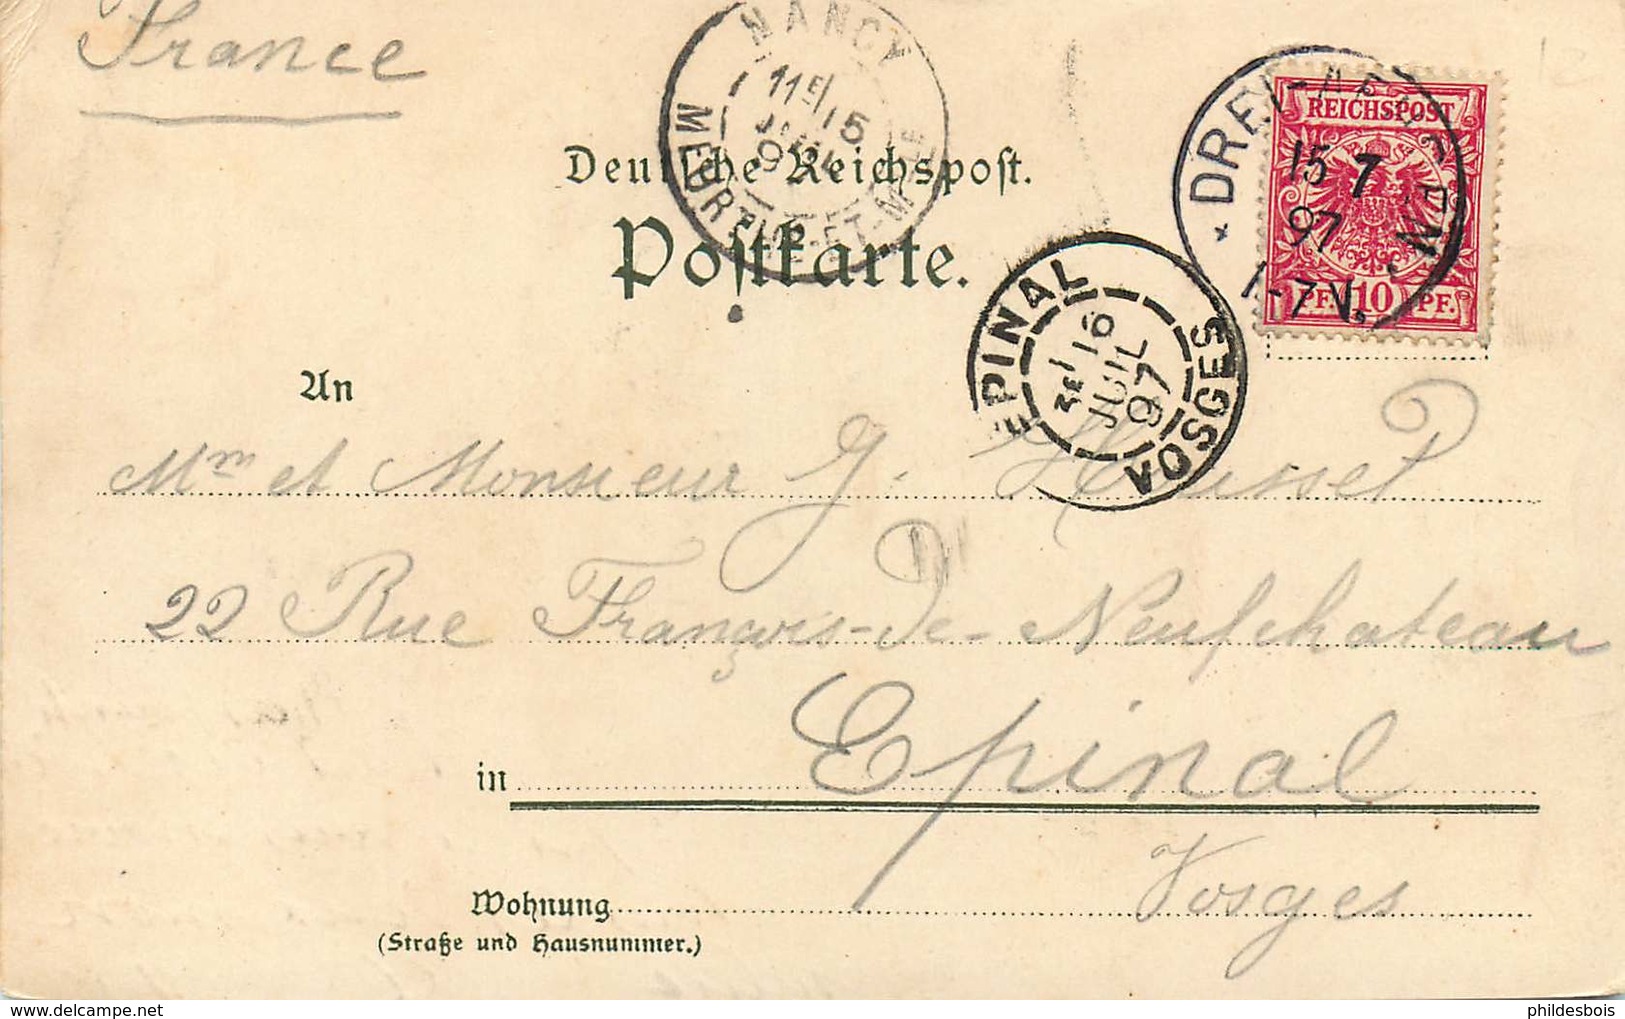 France
NANCY
11E/15
JUIL
MEURTHE-ET-M
REICHSPOST
15 7
97
1-7 V.
PF. 10 PF.
Deutsche Reichspost.
Postkarte.
EPINAL
16
JUIL
97
VOSGES
An
Mme et Monsieur J. Husset
22 Rue François-de-Neufchateau
in Epinal
Vosges
Wohnung
(Straße und Hausnummer.)
phildesbois